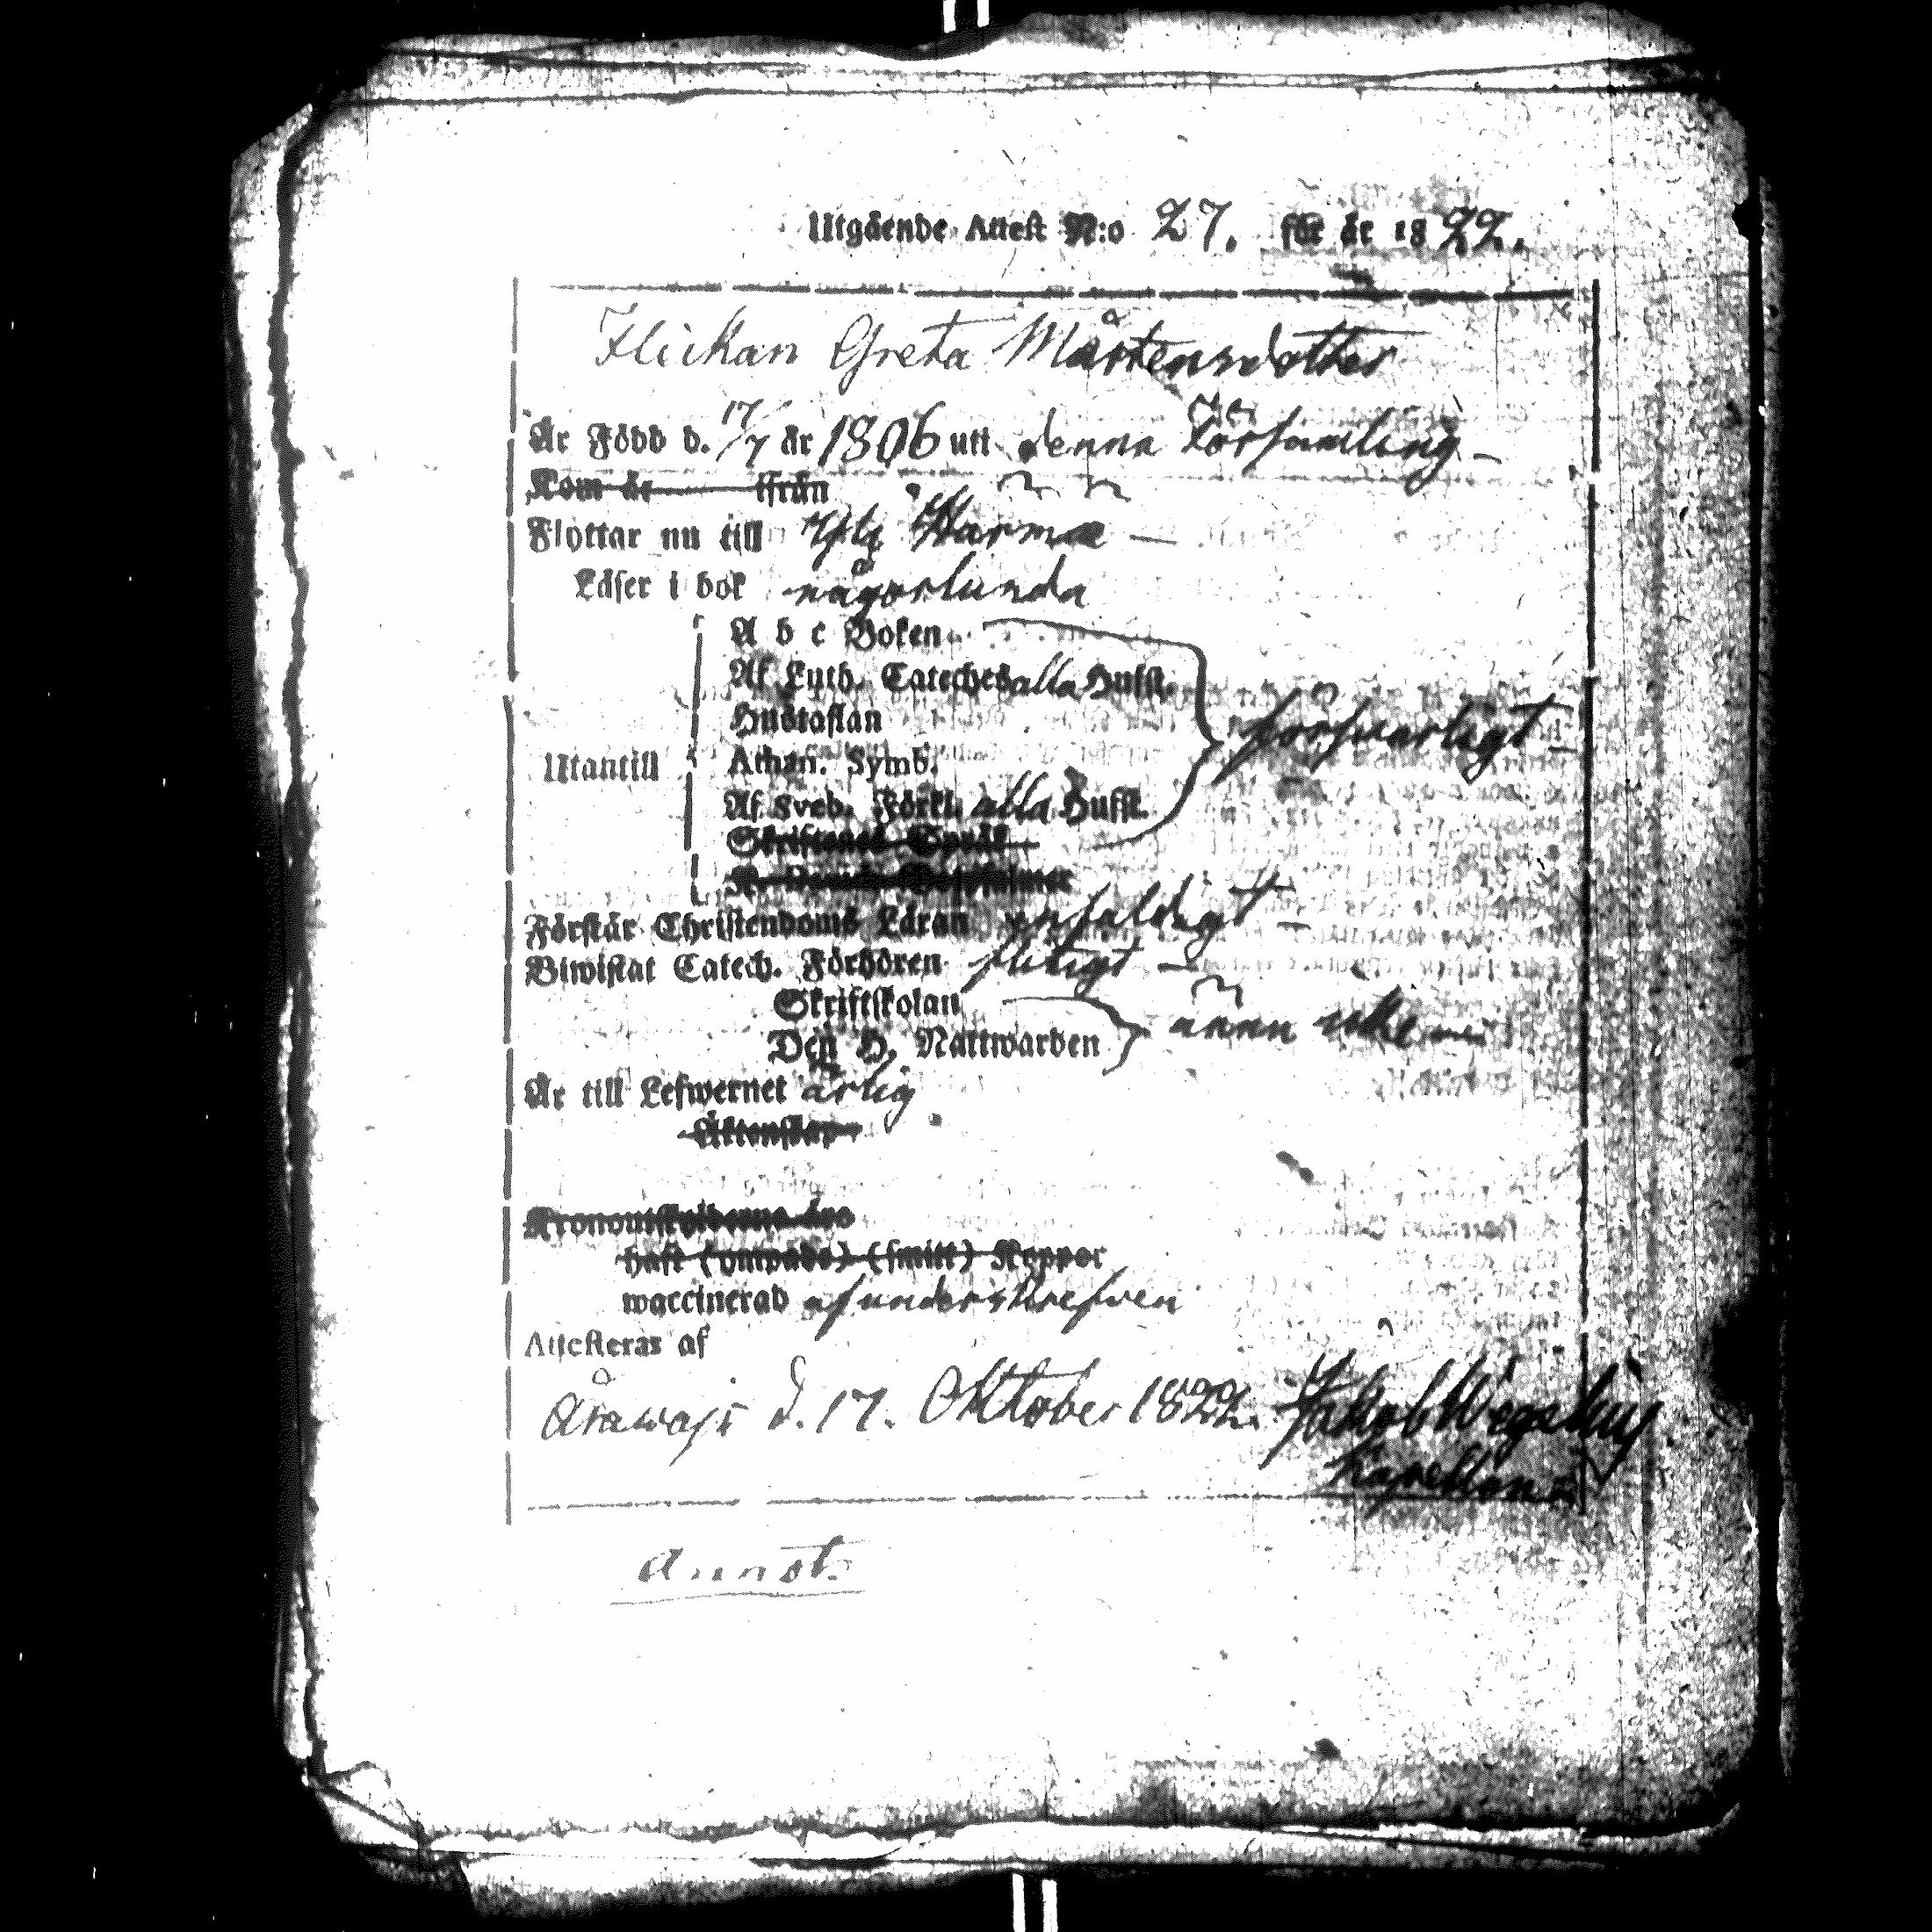 Utgående Attest N:o 27. för år 1822.
Flickan Greta Mårtensdotter
Är Född d. 17/7 år 1806 uti denna Församling
Kom år ifrån
Flyttar nu till Yli Härmä
Läser i bok någorlunda
A b c Boken
Af Luth. Cateches alla Hufst.
Hustaflan
Utantill Athan. Symb.
Af Sveb. Förkl. alla Hufst. försvarligt
Skriftenes Språk
Förstår Christendoms Läran enfaldigt
Biwistat Catech. Förhören flitigt
Skriftskolan
Dess H. Nattwarden ännu icke
Är till Lefwernet ärlig
Äktenskap
Kronoutskylderne äro
haft (ympade) (smitt) Koppor
waccinerad af underskrefven
Attesteras af
d. 17. Oktober 1822. Jakob Wegelius
Kapellan
Annot.